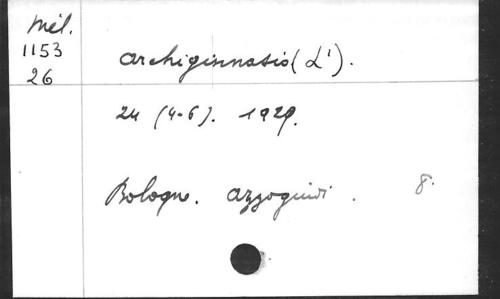 Mél.
1153
26
Archiginnasio (L').
24 (4-6). 1929.
Bologne. Azzoguidi. 8.